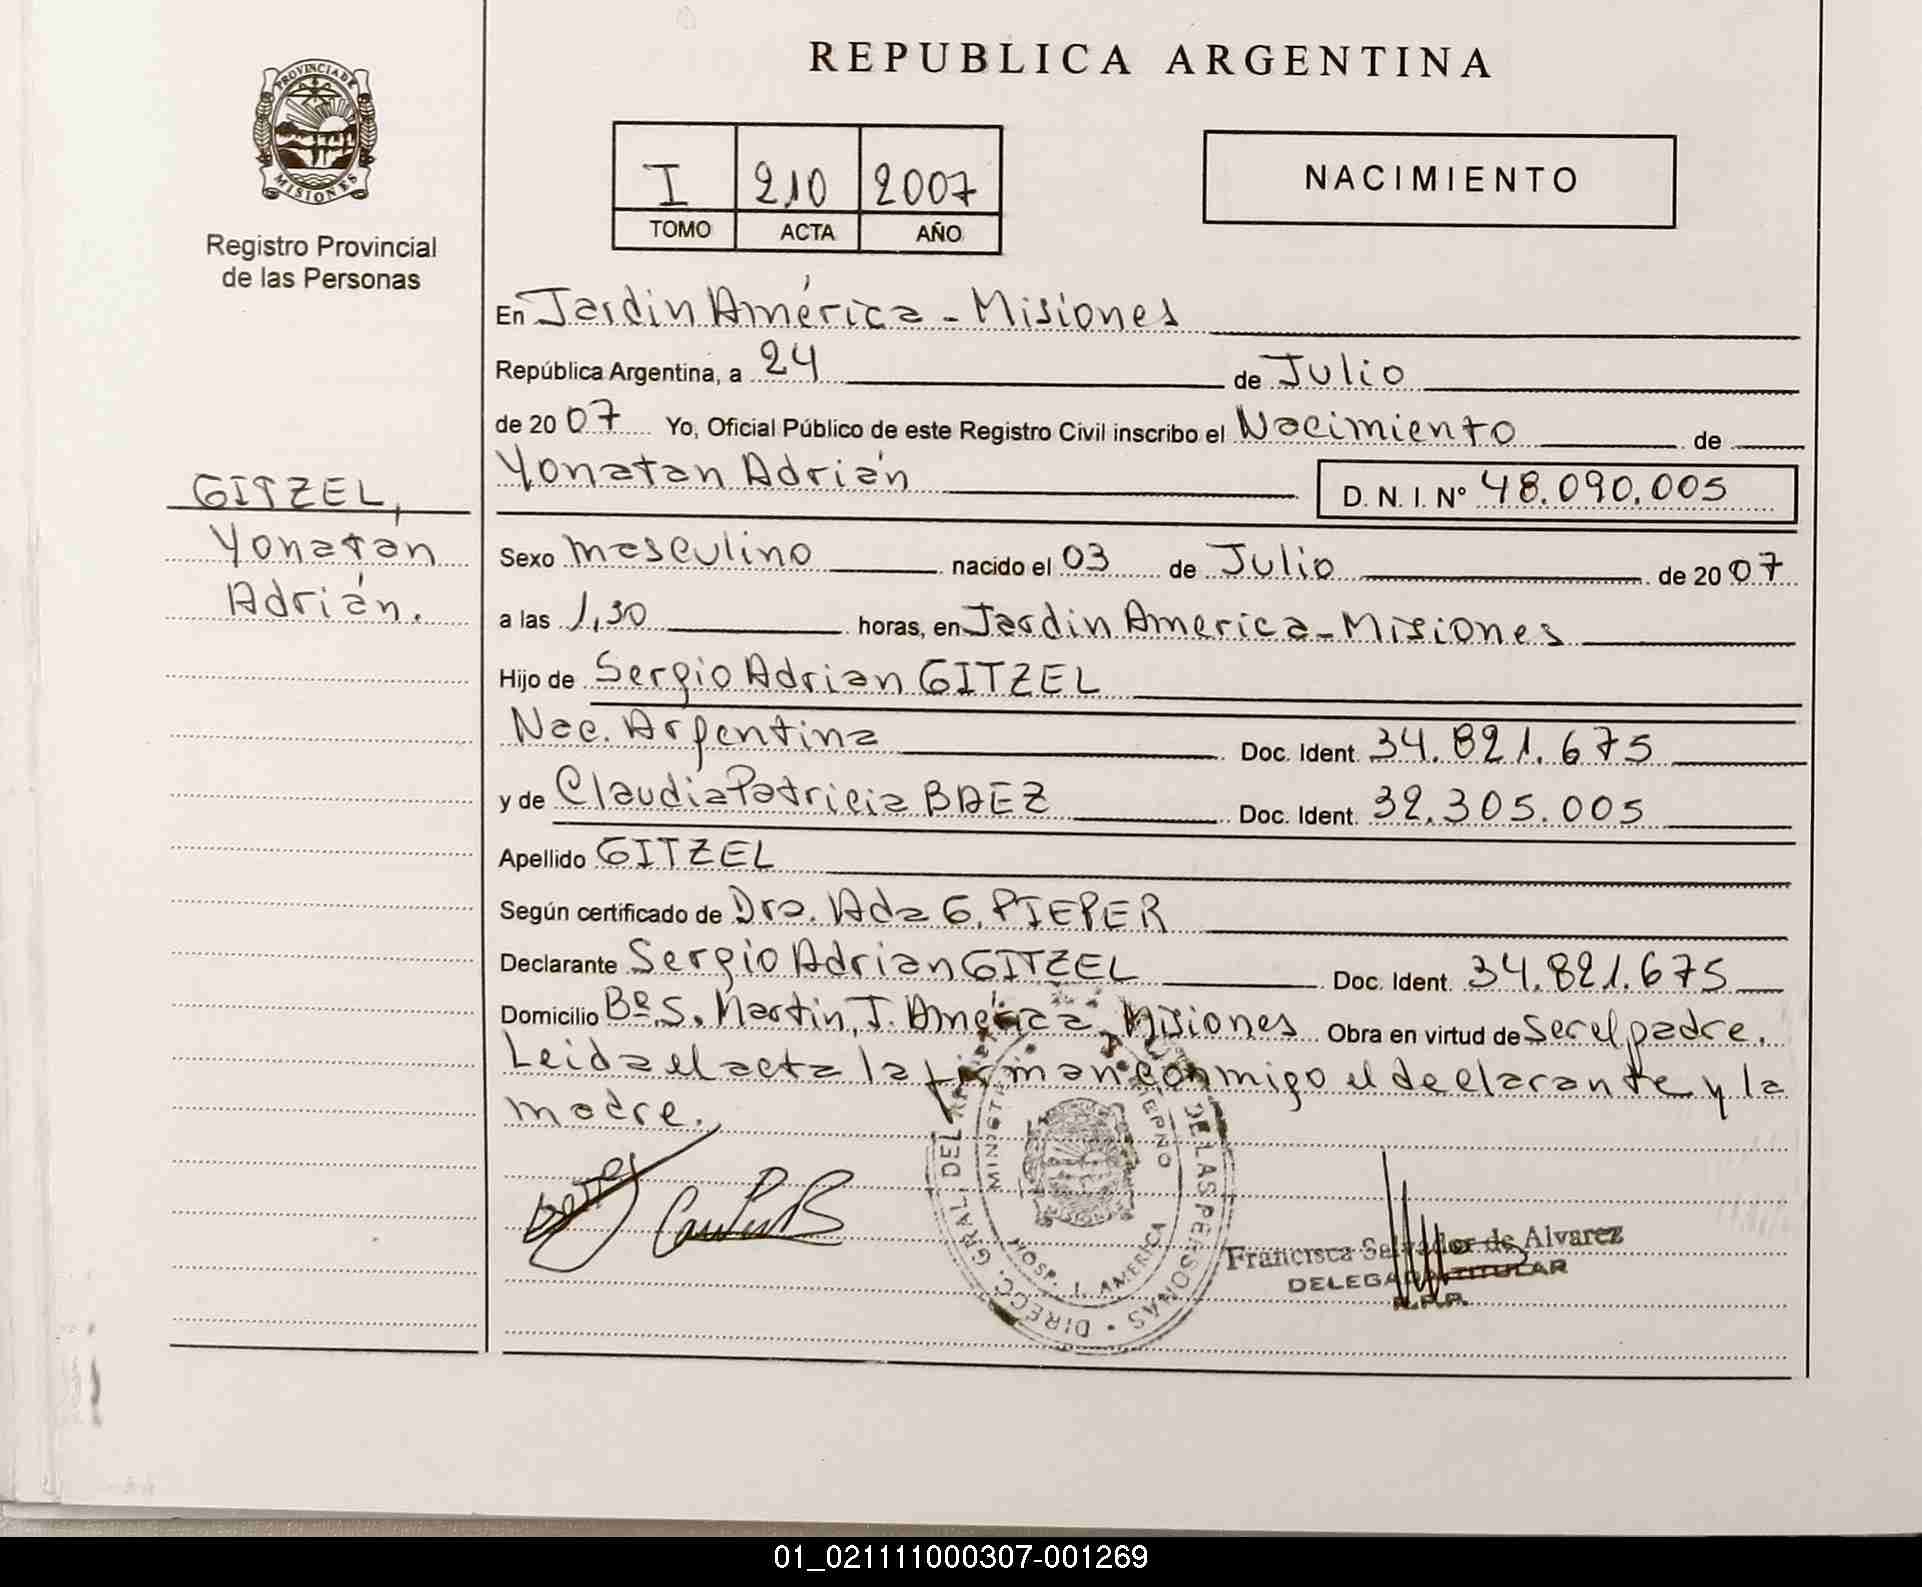 REPUBLICA ARGENTINA
PROVINCIA DE
MISIONES
Registro Provincial
de las Personas
I 210 2007
TOMO ACTA AÑO
NACIMIENTO
En Jardin América - Misiones
República Argentina, a 24 de Julio
de 2007 Yo, Oficial Público de este Registro Civil inscribo el Nacimiento de
Yonatan Adrián D. N. I. Nº 48.090.005
GITZEL,
Yonatan
Adrián.
Sexo masculino nacido el 03 de Julio de 2007
a las 1,30 horas, en Jardin America - Misiones
Hijo de Sergio Adrian GITZEL
Nac. Argentina Doc. Ident. 34.821.675
y de Claudia Patricia BAEZ Doc. Ident. 32.305.005
Apellido GITZEL
Según certificado de Dra. Ada G. PIEPER
Declarante Sergio Adrian GITZEL Doc. Ident. 34.821.675
Domicilio Bº. S. Martin, J. América, Misiones Obra en virtud de Ser el padre.
Leida el acta la firman conmigo el declarante y la
madre.
DIRECC. GRAL. DEL DE LAS PERSONAS
HOSP. J. AMERICA
Francisca Salvador de Alvarez
DELEGADA TITULAR
R.P.P.
01_021111000307-001269